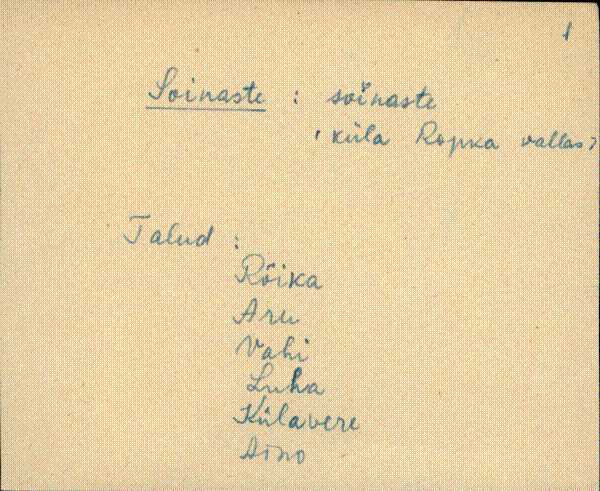 1
Soinaste : soinaste
‘küla Ropka vallas’
Talud :
Rõika
Aru
Vahi
Luha
Külavere
Aino